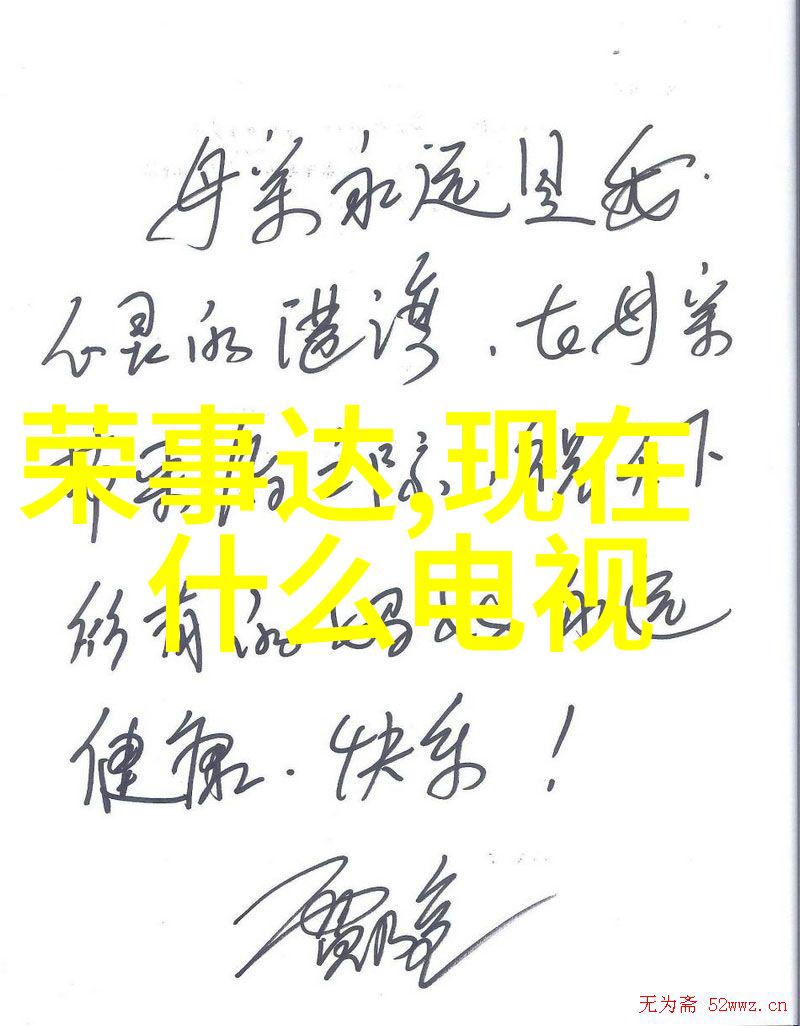 母亲永远是我
心灵的港湾，在母亲
荣事达,现在
什么电视
所有的妈妈永远
健康·快乐！
贾乃亮
无为斋 52wwz.cn